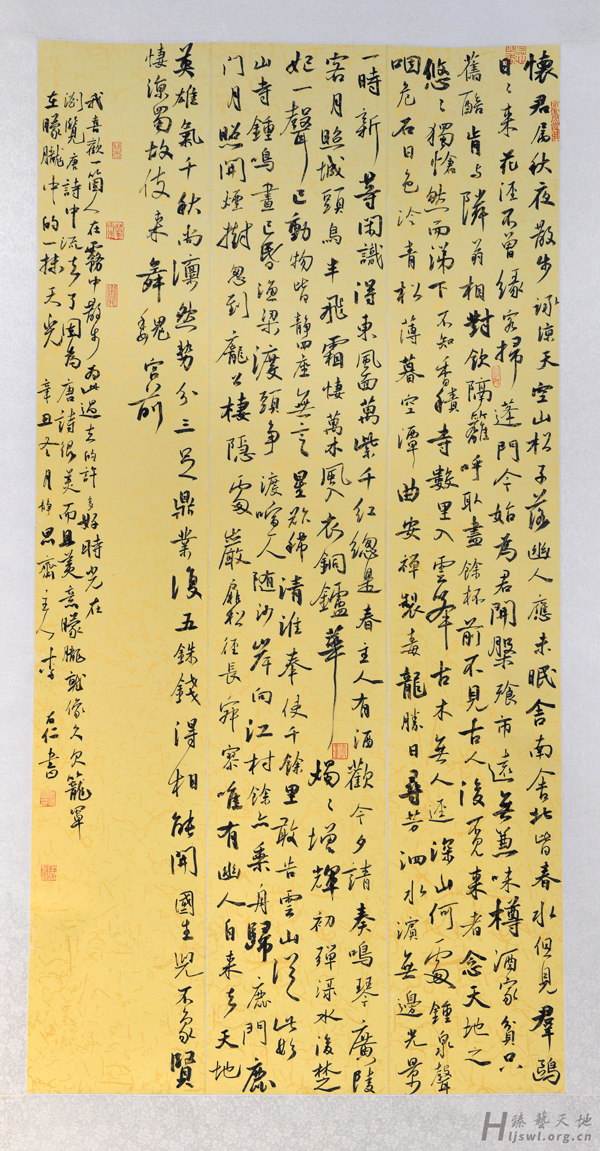 懷君屬秋夜散步詠涼天空山松子落幽人應未眠舍南舍北皆春水但見群鷗
日〻來花逕不曾緣客掃蓬門今始為君開盤飧市遠無兼味樽酒家貧只
舊醅肯与隣翁相對飲隔籬呼取盡餘杯前不見古人後不見來者念天地之
悠〻獨愴然而涕下不知香積寺數里入雲峰古木無人逕深山何處鍾泉聲
咽危石日色冷青松薄暮空潭曲安禪製毒龍勝日尋芳泗水濱無邊光景
一時新等閑識得東風面萬紫千紅總是春主人有酒歡今夕請奏鳴琴廣陵
客月照城頭烏半飛霜悽萬木風入衣銅鑪華燭〻增輝初彈淥水後楚
妃一聲已動物皆靜四座無言星欲稀清淮奉使千餘里敢告雲山從此始
山寺鍾鳴晝已昏漁梁渡頭爭渡喧人随沙岸向江村余亦乘舟歸鹿門鹿
门月照開煙樹忽到龐公棲隱處巖扉松徑長寂寥唯有幽人自来去天地
英雄氣千秋尚凜然勢分三足鼎業復五銖錢得相能開國生兒不象賢
悽涼蜀故伎来舞魏宮前
我喜歡一箇人在霧中散步為此過去的許多好時光在
瀏覽唐詩中流去了因為唐詩很美而且美意朦朧就像久久籠罩
在朦朧中的一抹天光 辛丑冬月 思齋主人李石仁書
臻藝天地
Hljswl.org.cn